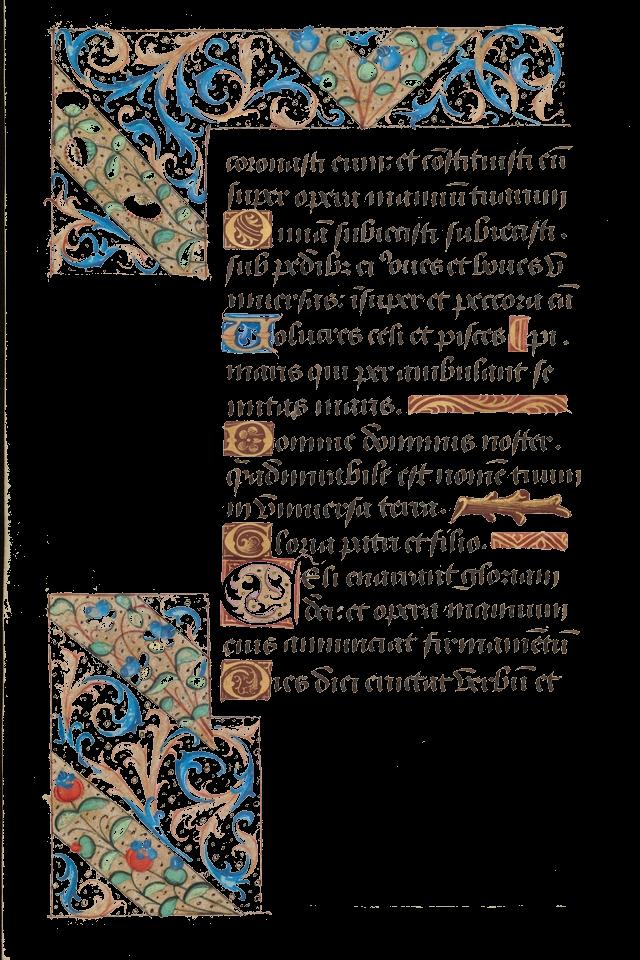 coronasti eum: et cōstituisti eū
super opera manuū tuarum
Omīa subiecisti subiecisti.
sub pedibꝫ ei⁹ oues et boues v̄
niuersas: īsuper et peccora cā
Uolucres celi et pisces
maris qui per ambulant se
mitas maris.
Domine dominus noster.
q̄ admirabile est nomē tuum
in vniuersa terra.
Gloria patri et filio.
Celi enarrant gloriam
dei: et opera manuum
eius annunciat firmamētū
Dies diei eructat verbū et